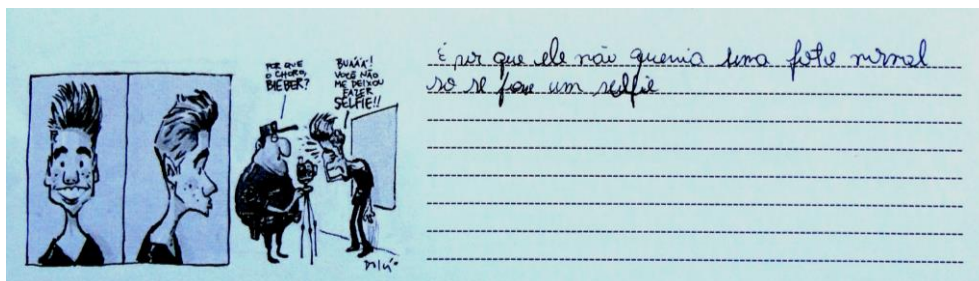 POR QUE
O CHORO,
BIEBER?
BUÁÁÁ!
VOCÊ NÃO
ME DEIXOU
FAZER
SELFIE!!
É por que ele não queria uma foto normal
so se fose um selfie